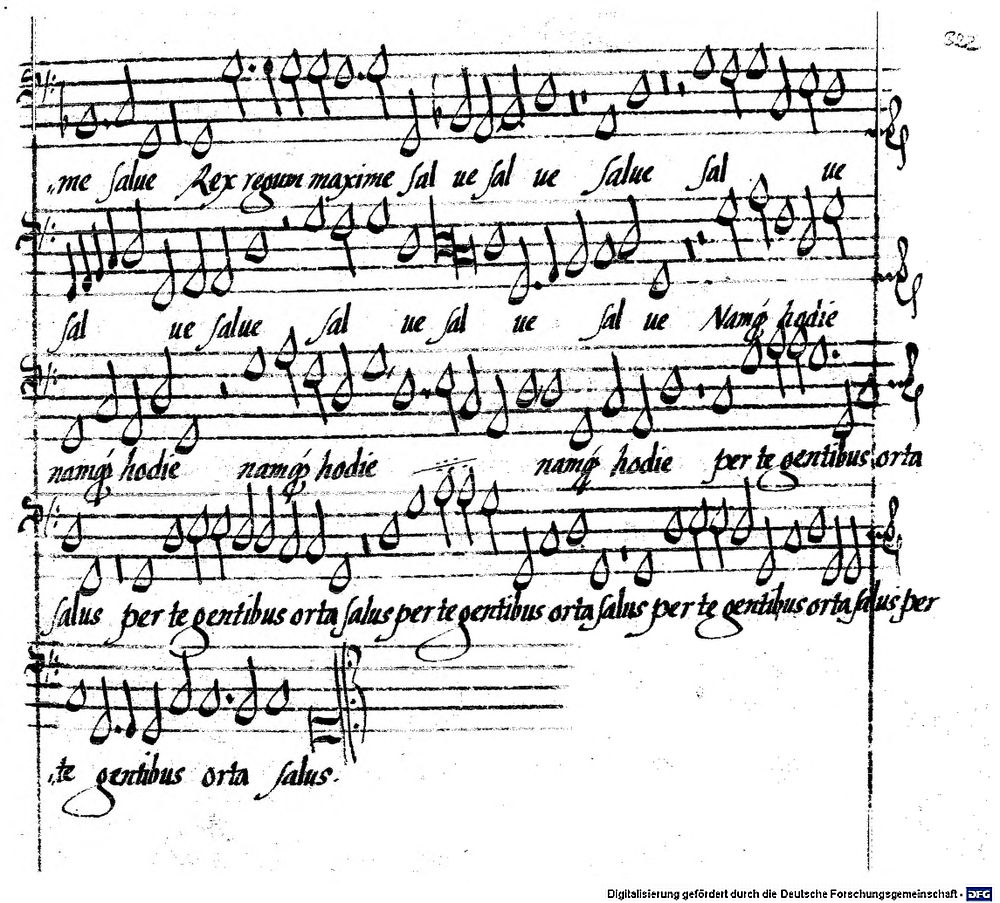 322
me salue Rex regum maxime sal ue sal ue salue sal ue
sal ue salue sal ue sal ue sal ue Namq́ hodie
namq́ hodie namq́ hodie namq́ hodie per te gentibus orta
salus per te gentibus orta salus per te gentibus orta salus per te gentibus orta salus per
te gentibus orta salus.
Digitalisierung gefördert durch die Deutsche Forschungsgemeinschaft - DFG